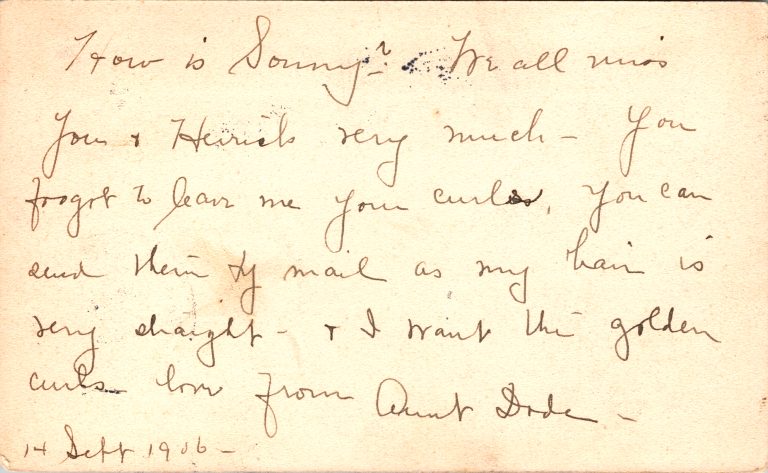 How is Sonny? We all miss
You & Herrick very much – You
frogot to leave me your curls, you can
send them by mail as my hair is
very straight – & I want the golden
curls love from Aunt Dode –
14 Sept 1906 –